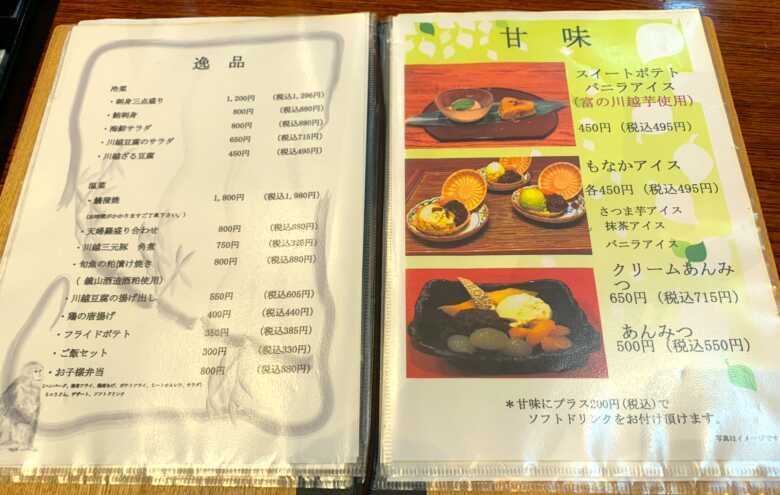 逸品
冷菜
・刺身三点盛り 1,200円 (税込1,296円)
・鮪刺身 800円 (税込880円)
・海鮮サラダ 800円 (税込880円)
・川越豆腐のサラダ 650円 (税込715円)
・川越ざる豆腐 450円 (税込495円)
温菜
1,800円 (税込1,980円)
(お時間がかかりますご了承下さい。)
・天婦羅盛り合わせ 800円 (税込880円)
・川越三元豚 角煮 750円
・旬魚の粕漬け焼き 800円 (税込880円)
(鏡山酒造酒粕使用)
・川越豆腐の揚げ出し 550円 (税込605円)
・鶏の唐揚げ 400円 (税込440円)
・フライドポテト 350円 (税込385円)
・ご飯セット 300円 (税込330円)
・お子様弁当 800円 (税込880円)
甘味
スイートポテト
バニラアイス
(富の川越芋使用)
450円 (税込495円)
もなかアイス
各450円 (税込495円)
さつま芋アイス
抹茶アイス
バニラアイス
クリームあんみ
つ
650円 (税込715円)
あんみつ
500円 (税込550円)
*甘味にプラス200円(税込)で
ソフトドリンクをお付け頂けます。
写真はイメージです